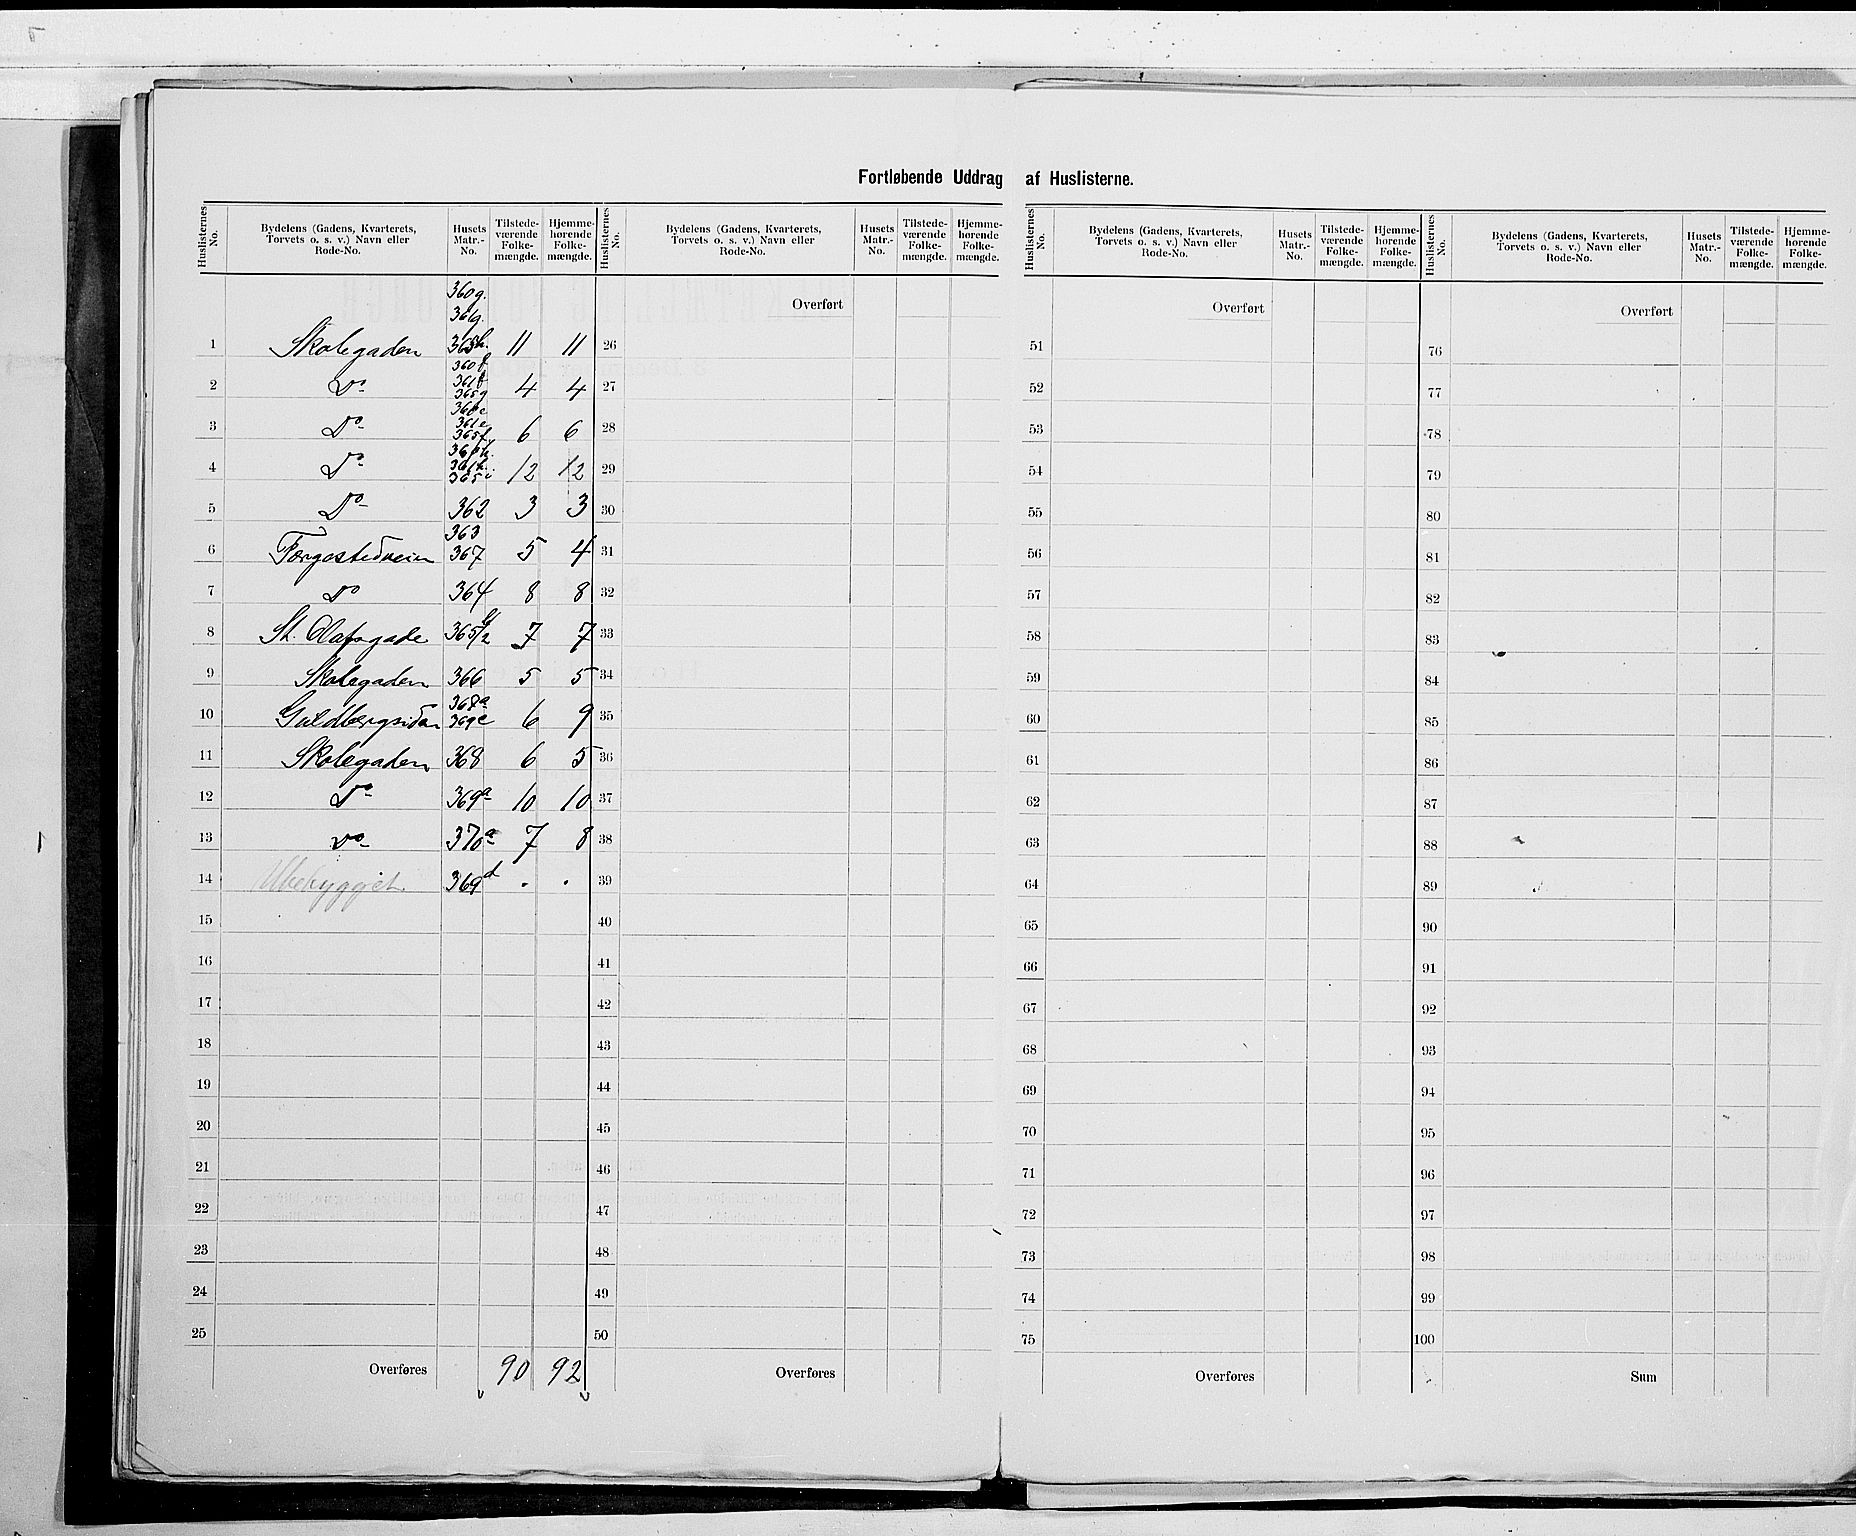 Fortløbende Uddrag af Huslisterne.
Huslisternes No. | Bydelens (Gadens, Kvarterets, Torvets o. s. v.) Navn eller Rode-No. | Husets Matr.-No. | Tilstede-værende Folke-mængde. | Hjemme-hørende Folke-mængde.
Huslisternes No. | Bydelens (Gadens, Kvarterets, Torvets o. s. v.) Navn eller Rode-No. | Husets Matr.-No. | Tilstede-værende Folke-mængde. | Hjemme-hørende Folke-mængde.
Huslisternes No. | Bydelens (Gadens, Kvarterets, Torvets o. s. v.) Navn eller Rode-No. | Husets Matr.-No. | Tilstede-værende Folke-mængde. | Hjemme-hørende Folke-mængde.
Huslisternes No. | Bydelens (Gadens, Kvarterets, Torvets o. s. v.) Navn eller Rode-No. | Husets Matr.-No. | Tilstede-værende Folke-mængde. | Hjemme-hørende Folke-mængde.
360g.
Overført Overført Overført
361g.
1 Skolegaden 365h. 11 11 26 51 76
360f
2 Do 361f 4 4 27 52 77
365g
360e
3 Do 361e 6 6 28 53 78
365f
360h.
4 Do 361h. 12 12 29 54 79
365i
5 Do 362 3 3 30 55 80
363
6 Færgestedveien 367 5 4 31 56 81
7 Do 364 8 8 32 57 82
8 St. Olafsgade 365 7 7 33 58 83
9 Skolegaden 366 5 5 34 59 84
368a
10 369e 6 9 35 60 85
11 Skolegaden 368 6 5 36 61 86
12 Do 369a 10 10 37 62 87
13 Do 370a 7 8 38 63 88
14 Ubebygget. 369d . . 39 64 89
15 40 65 90
16 41 66 91
17 42 67 92
18 43 68 93
19 44 69 94
20 45 70 95
21 46 71 96
22 47 72 97
23 48 73 98
24 49 74 99
25 50 75 100
Overføres 90 92 Overføres Overføres Sum